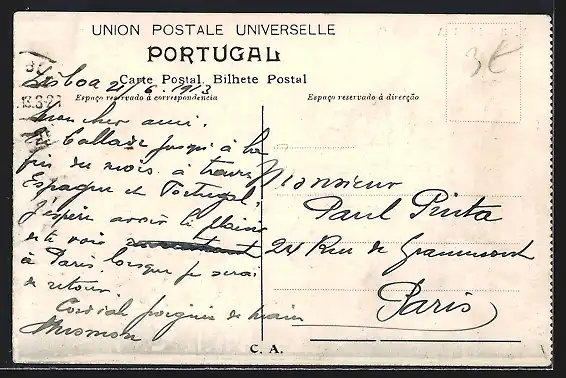 UNION POSTALE UNIVERSELLE
PORTUGAL
Carte Postal. Bilhete Postal
Espaço reservado á correspondencia
Espaço reservado á direcção
3€
Lisboa 21/6. 1913
Mon cher ami.
Ballade jusqu'à la
fin du mois à travers
Espagne et Portugal.
J'espère avoir le plaisir
de te voir
à Paris lorsque je serai
de retour.
Cordiale poignée de main
Monsieur
Paul Pinta
24 Rue de Grammont
Paris
C. A.